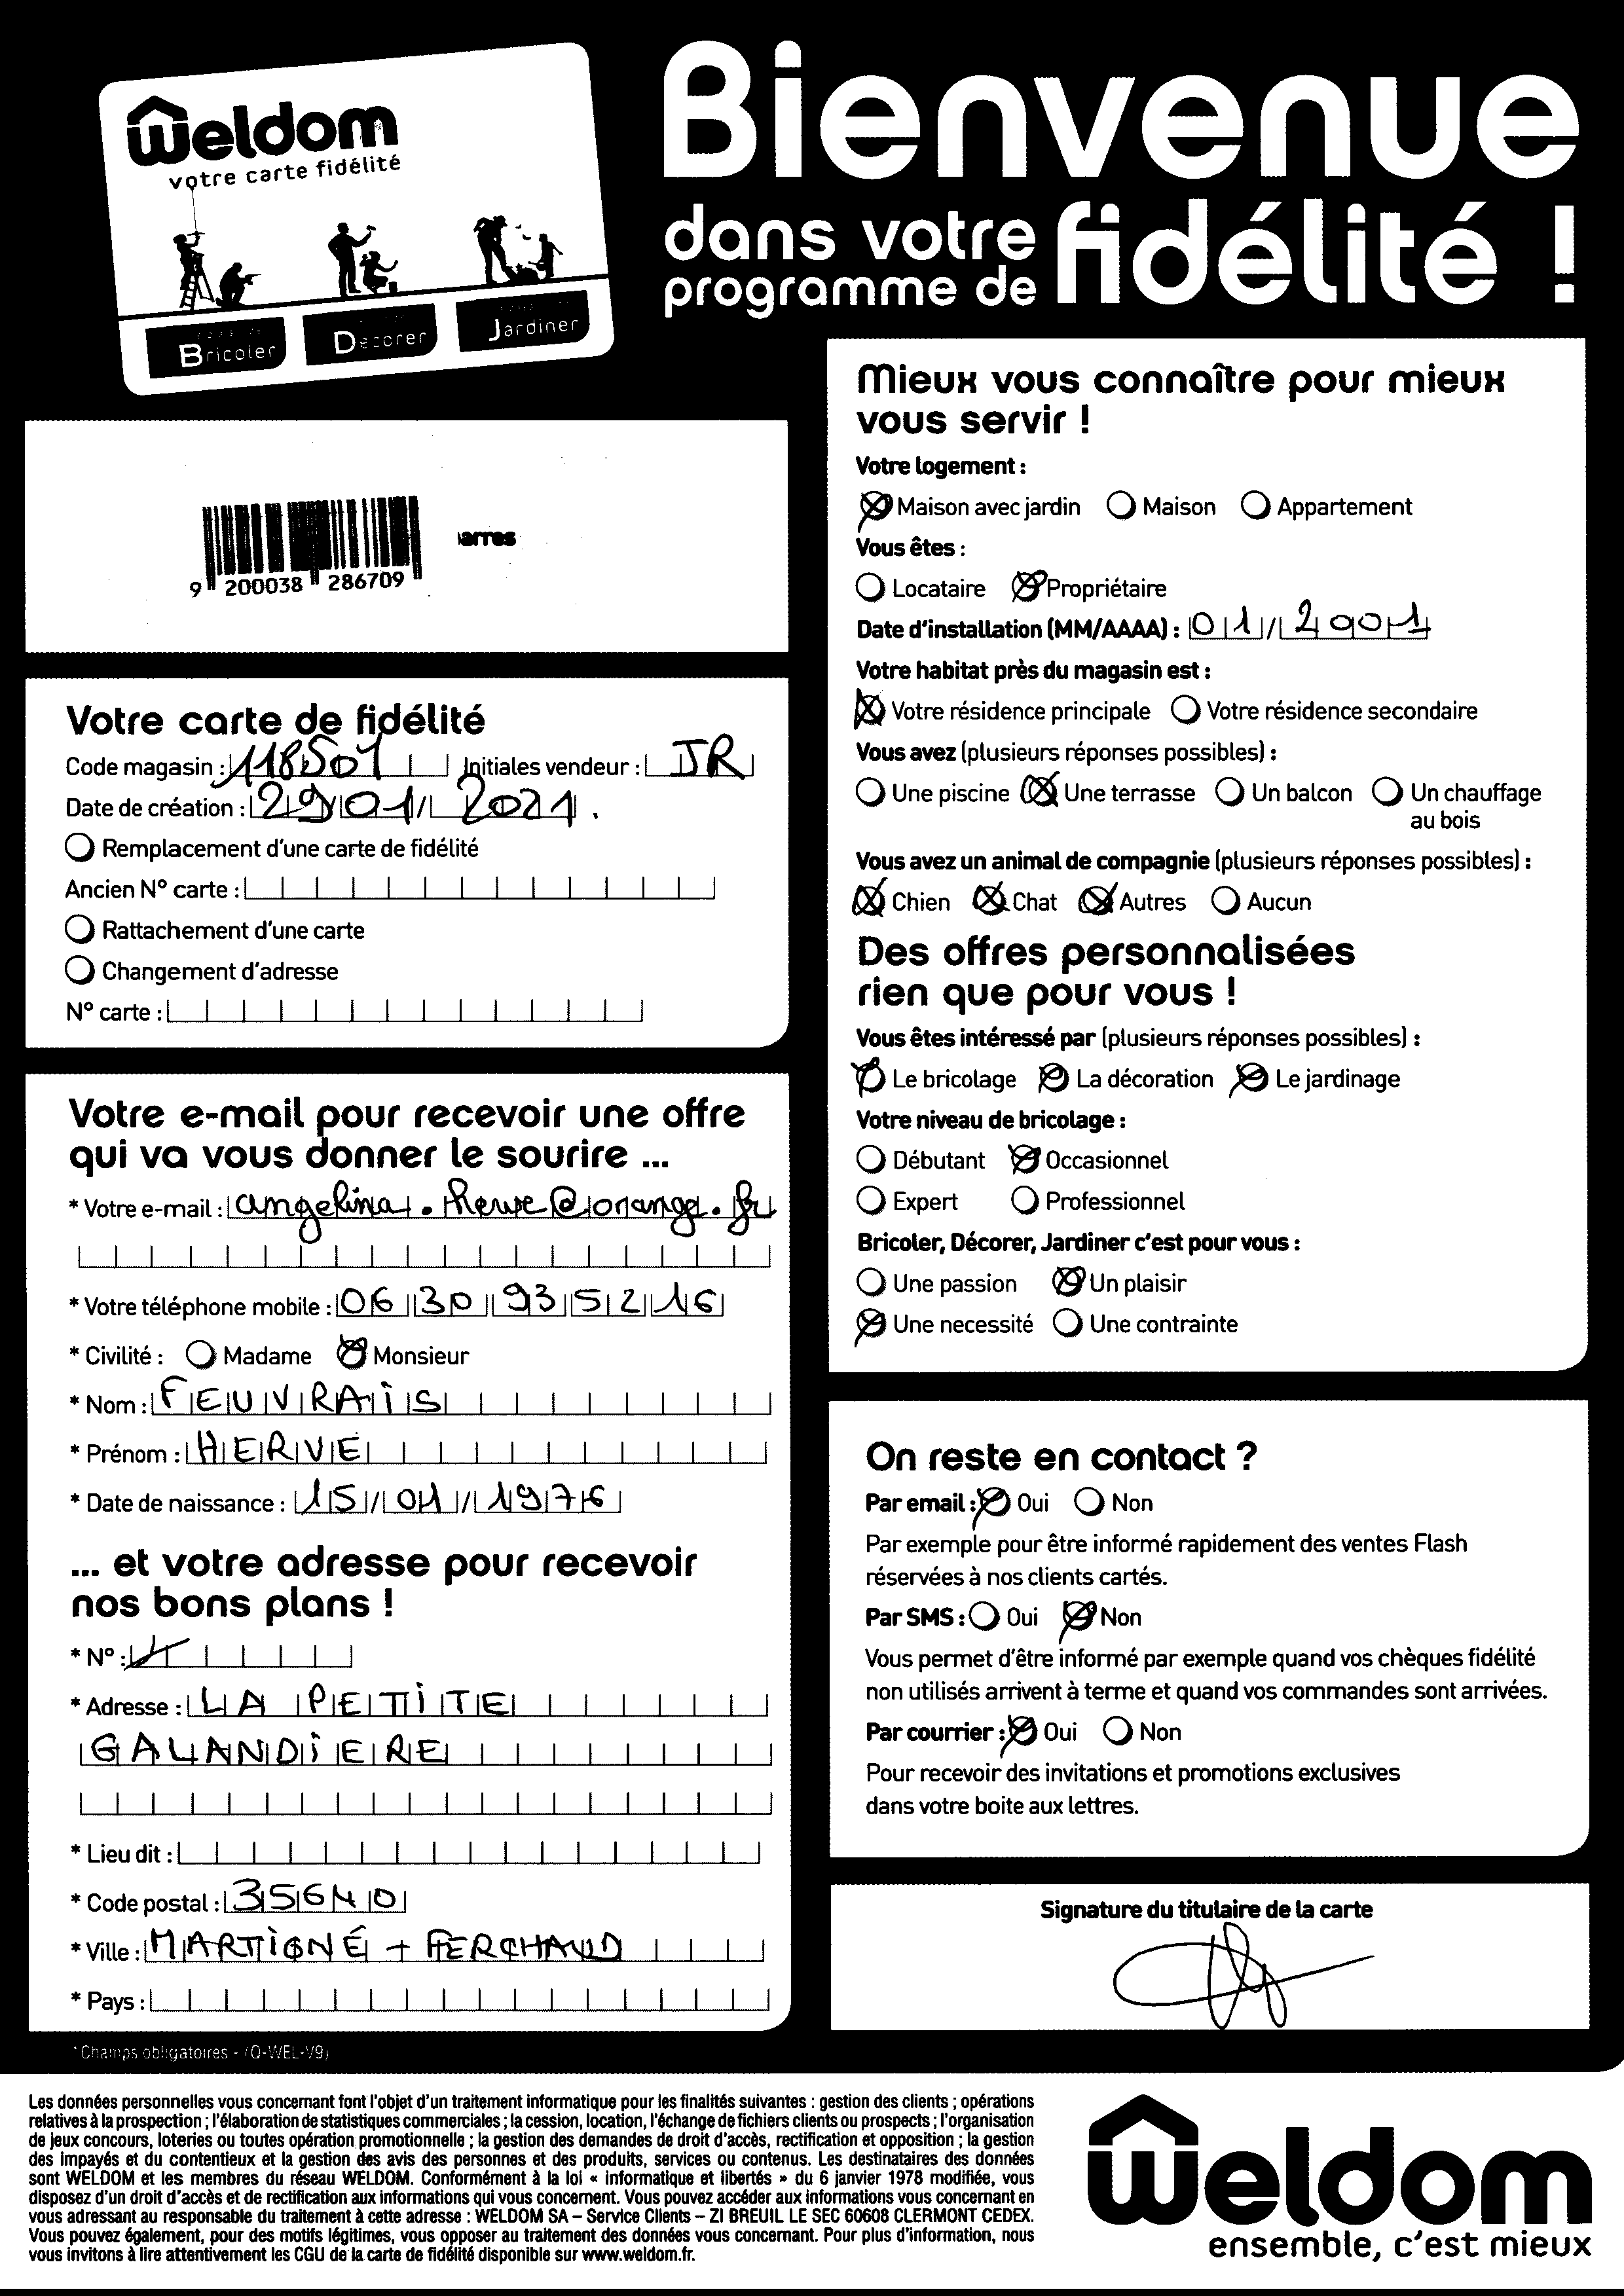 Weldom
votre carte fidélité
Bricoler Décorer Jardiner
Bienvenue
dans votre
programme de fidélité !
arres
9 200038 286709
Votre carte de fidélité
Code magasin : 118501 Initiales vendeur : JR
Date de création : 29/01/2021.
Remplacement d'une carte de fidélité
Ancien N° carte :
Rattachement d'une carte
Changement d'adresse
N° carte :
Votre e-mail pour recevoir une offre
qui va vous donner le sourire ...
* Votre e-mail : angelina.herve@orange.fr
* Votre téléphone mobile : 06 30 93 52 16
* Civilité : Madame Monsieur
* Nom : FEUVRAIS
* Prénom : HERVE
* Date de naissance : 15/01/1976
... et votre adresse pour recevoir
nos bons plans !
* N° :
* Adresse : LA PETITE
GALANDIERE
* Lieu dit :
* Code postal : 35640
* Ville : MARTIGNÉ - FERCHAUD
* Pays :
*Champs obligatoires - (Q-WEL-V9)
Mieux vous connaître pour mieux
vous servir !
Votre logement :
Maison avec jardin Maison Appartement
Vous êtes :
Locataire Propriétaire
Date d'installation (MM/AAAA) : 01/2001
Votre habitat près du magasin est :
Votre résidence principale Votre résidence secondaire
Vous avez (plusieurs réponses possibles) :
Une piscine Une terrasse Un balcon Un chauffage
au bois
Vous avez un animal de compagnie (plusieurs réponses possibles) :
Chien Chat Autres Aucun
Des offres personnalisées
rien que pour vous !
Vous êtes intéressé par (plusieurs réponses possibles) :
Le bricolage La décoration Le jardinage
Votre niveau de bricolage :
Débutant Occasionnel
Expert Professionnel
Bricoler, Décorer, Jardiner c'est pour vous :
Une passion Un plaisir
Une necessité Une contrainte
On reste en contact ?
Par email : Oui Non
Par exemple pour être informé rapidement des ventes Flash
réservées à nos clients cartés.
Par SMS : Oui Non
Vous permet d'être informé par exemple quand vos chèques fidélité
non utilisés arrivent à terme et quand vos commandes sont arrivées.
Par courrier : Oui Non
Pour recevoir des invitations et promotions exclusives
dans votre boite aux lettres.
Signature du titulaire de la carte
Les données personnelles vous concernant font l'objet d'un traitement informatique pour les finalités suivantes : gestion des clients ; opérations
relatives à la prospection ; l'élaboration de statistiques commerciales ; la cession, location, l'échange de fichiers clients ou prospects ; l'organisation
de jeux concours, loteries ou toutes opération promotionnelle ; la gestion des demandes de droit d'accès, rectification et opposition ; la gestion
des impayés et du contentieux et la gestion des avis des personnes et des produits, services ou contenus. Les destinataires des données
sont WELDOM et les membres du réseau WELDOM. Conformément à la loi « informatique et libertés » du 6 janvier 1978 modifiée, vous
disposez d'un droit d'accès et de rectification aux informations qui vous concernent. Vous pouvez accéder aux informations vous concernant en
vous adressant au responsable du traitement à cette adresse : WELDOM SA – Service Clients – ZI BREUIL LE SEC 60608 CLERMONT CEDEX.
Vous pouvez également, pour des motifs légitimes, vous opposer au traitement des données vous concernant. Pour plus d'information, nous
vous invitons à lire attentivement les CGU de la carte de fidélité disponible sur www.weldom.fr.
Weldom
ensemble, c'est mieux